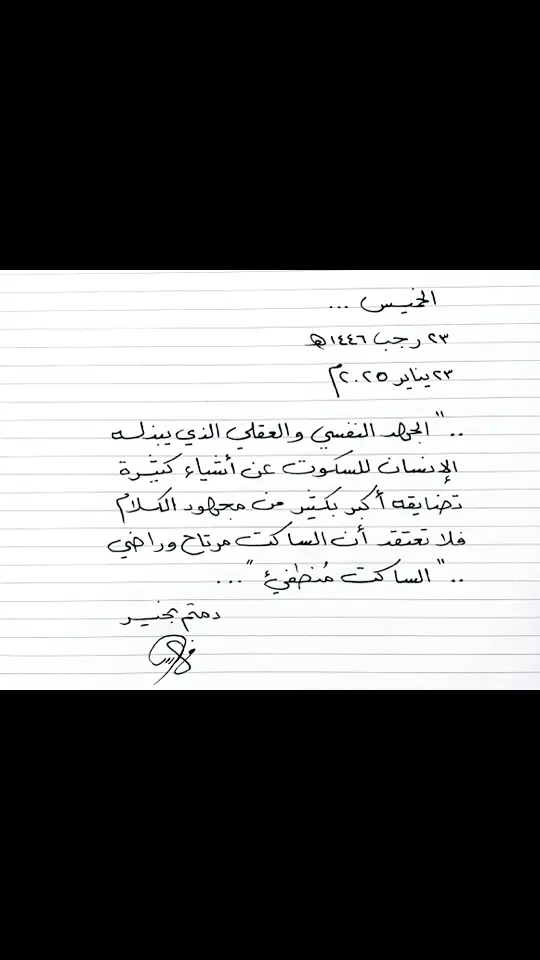 الخميس ...
٢٣ رجب ١٤٤٦هـ
٢٣ يناير ٢٠٢٥م
.. " الجهد النفسي والعقلي الذي يبذله
الإنسان للسكوت عن أشياء كثيرة
تضايقه أكبر بكثير من مجهود الكلام
فلا تعتقد أن الساكت مرتاح وراضي
.. " الساكت مُنطفئ " ...
دمتم بخير